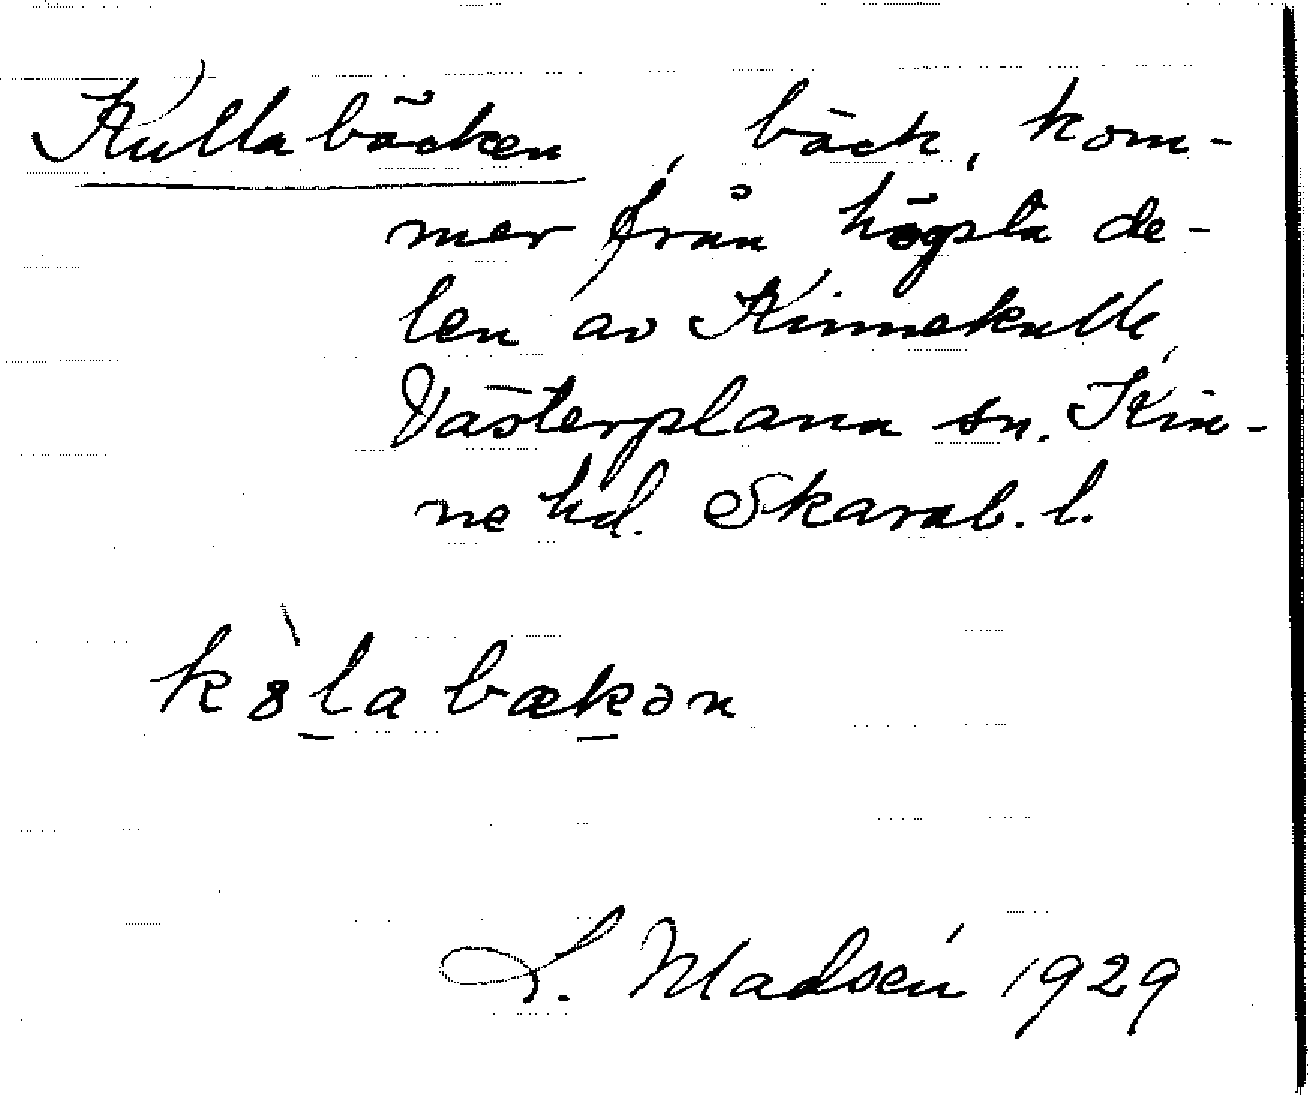 Kullabäcken, bäck, kom-
mer från högsta de-
len av Kinnekulle,
Västerplana sn. Kin-
ne hd. Skarab. l.
kòla bækən
S. Madsén 1929